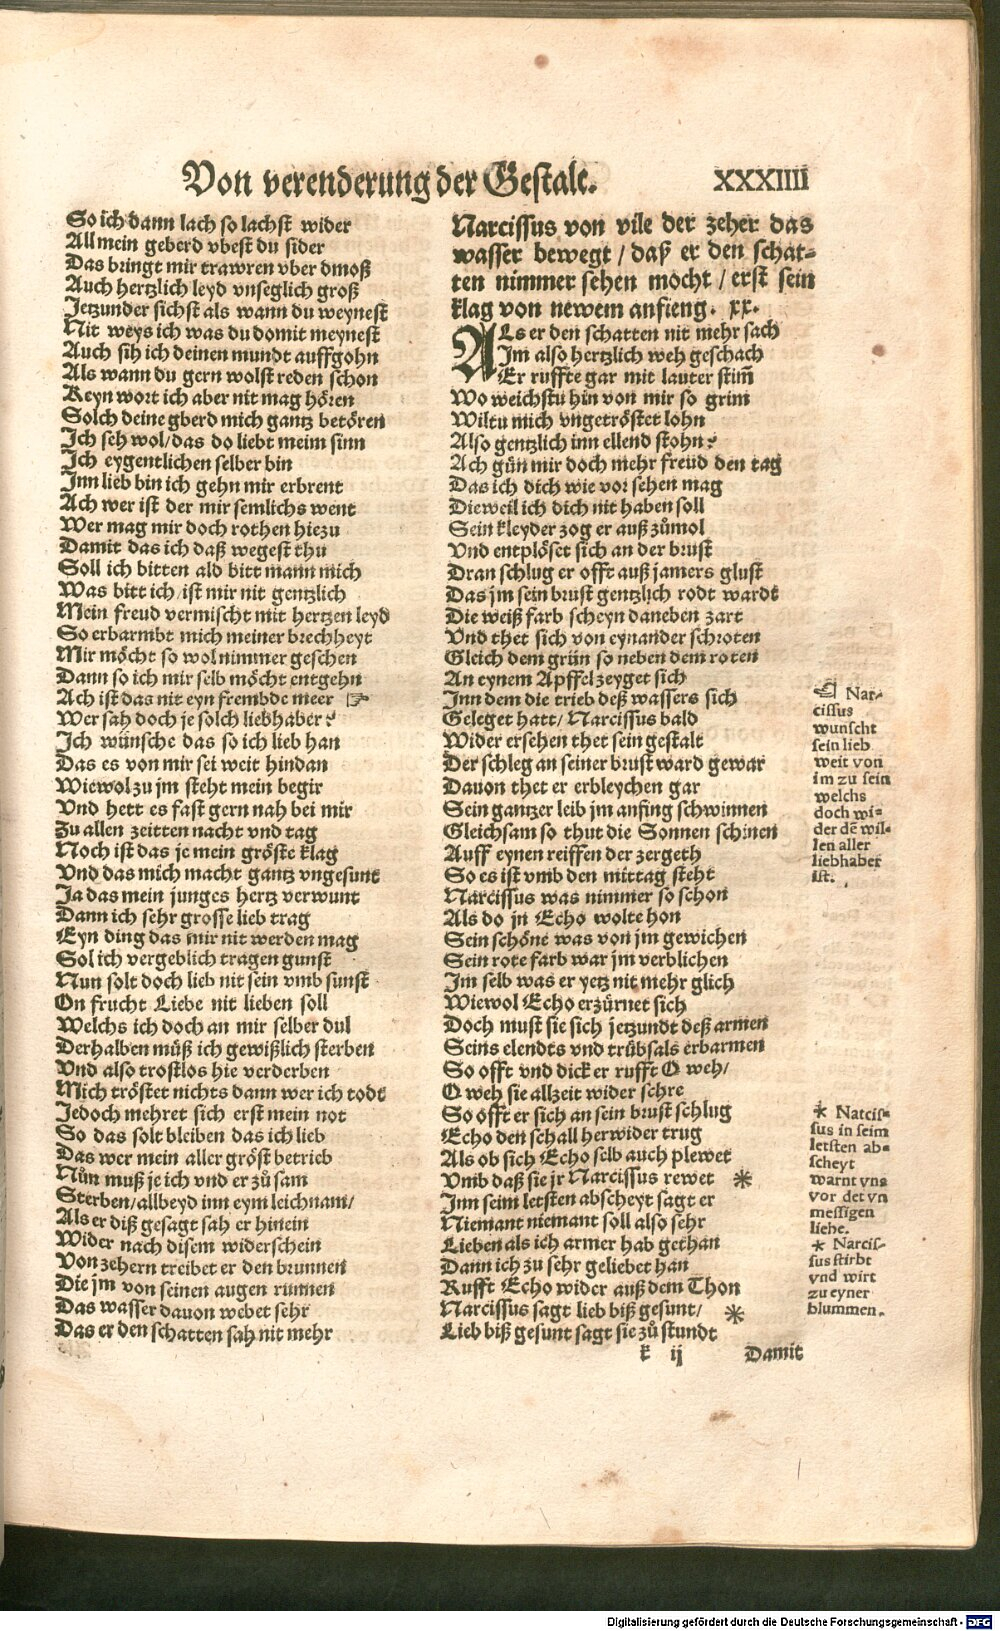 Von verenderung der Gestalt.
XXXIIII
So ich dann lach so lachst wider
All mein geberd vbest du sider
Das bringt mir trawren vber dmoß
Auch hertzlich leyd vnseglich groß
Jetzunder sichst als wann du weynest
Nit weys ich was du domit meynest
Auch sih ich deinen mundt auffgohn
Als wann du gern wolst reden schon
Keyn wort ich aber nit mag hören
Solch deine gberd mich gantz betören
Ich seh wol/das do liebt meim sinn
Ich eygentlichen selber bin
Inn lieb bin ich gehn mir erbrent
Ach wer ist der mir semlichs went
Wer mag mir doch rothen hiezu
Damit das ich daß wegest thu
Soll ich bitten ald bitt mann mich
Was bitt ich/ist mir nit gentzlich
Mein freud vermischt mit hertzen leyd
So erbarmbt mich meiner brechheyt
Mir möcht so wol nimmer geschen
Dann so ich mir selb möcht entgehn
Ach ist das nit eyn frembde meer ☞
Wer sah doch je solch liebhaber?
Ich wünsche das so ich lieb han
Das es von mir sei weit hindan
Wiewol zu jm steht mein begir
Vnd hett es fast gern nah bei mir
Zu allen zeitten nacht vnd tag
Noch ist das je mein gröste klag
Vnd das mich macht gantz vngesunt
Ja das mein junges hertz verwunt
Dann ich sehr grosse lieb trag
Eyn ding das mir nit werden mag
Sol ich vergeblich tragen gunst
Nun solt doch lieb nit sein vmb sunst
On frucht Liebe nit lieben soll
Welchs ich doch an mir selber dul
Derhalben müß ich gewißlich sterben
Vnd also trostlos hie verderben
Mich tröstet nichts dann wer ich todt
Jedoch mehret sich erst mein not
So das solt bleiben das ich lieb
Das wer mein aller gröst betrieb
Nůn muß je ich vnd er zů sam
Sterben/allbeyd inn eym leichnam/
Als er diß gesagt sah er hinein
Wider nach disem widerschein
Von zehern treibet er den brunnen
Die jm von seinen augen runnen
Das wasser dauon webet sehr
Das er den schatten sah nit mehr
Narcissus von vile der zeher das
wasser bewegt / daß er den schat-
ten nimmer sehen mocht / erst sein
klag von newem anfieng. xx.
ALs er den schatten nit mehr sach
Jm also hertzlich weh geschach
Er ruffte gar mit lauter stim̃
Wo weichstu hin von mir so grim
Wiltu mich vngetröstet lohn
Also gentzlich inn ellend stohn?
Ach gün mir doch mehr freud den tag
Das ich dich wie vor sehen mag
Dieweil ich dich nit haben soll
Sein kleyder zog er auß zůmol
Vnd entplöset sich an der brust
Dran schlug er offt auß jamers glust
Das jm sein brust gentzlich rodt wardt
Die weiß farb scheyn daneben zart
Vnd thet sich von eynander schroten
Gleich dem grün so neben dem roten
An eynem Apffel zeyget sich
Inn dem die trieb deß wassers sich
Geleget hatt/Narcissus bald
Wider ersehen thet sein gestalt
Der schleg an seiner brust ward gewar
Dauon thet er erbleychen gar
Sein gantzer leib jm anfing schwinnen
Gleichsam so thut die Sonnen schinen
Auff eynen reiffen der zergeth
So es ist vmb den mittag steht
Narcissus was nimmer so schon
Als do jn Echo wolte hon
Sein schöne was von jm gewichen
Sein rote farb war jm verblichen
Jm selb was er yetz nit mehr glich
Wiewol Echo erzürnet sich
Doch must sie sich jetzundt deß armen
Seins elendts vnd trübsals erbarmen
So offt vnd dick er rufft O weh/
O weh sie allzeit wider schre
So offt er sich an sein brust schlug
Echo den schall herwider trug
Als ob sich Echo selb auch plewet
Vmb daß sie jr Narcissus rewet *
Inn seim letsten abscheyt sagt er
Niemant niemant soll also sehr
Lieben als ich armer hab gethan
Dann ich zu sehr geliebet han
Rufft Echo wider auß dem Thon
Narcissus sagt lieb biß gesunt/ *
Lieb biß gesunt sagt sie zů stundt
k ij Damit
☜ Nar-
cissus
wunscht
sein lieb
weit von
im zu sein
welchs
doch wi-
der dẽ wil-
len aller
liebhaber
ist.
* Natcis-
sus in seim
letsten ab-
scheyt
warnt vns
vor det vn
messigen
liebe.
* Narcis-
sus stirbt
vnd wirt
zu eyner
blummen.
Digitalisierung gefördert durch die Deutsche Forschungsgemeinschaft - DFG